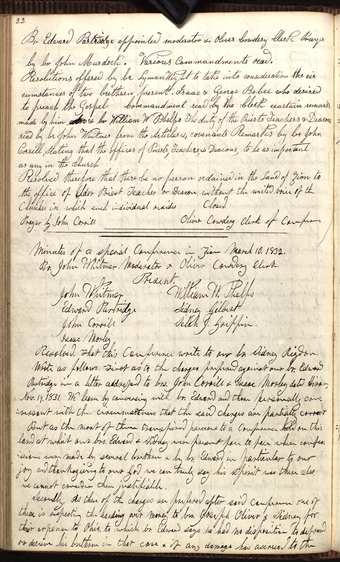 22
Br Edward Partridge appointed moderator & Oliver Cowdery Clerk prayer
by br John Murdock. Various Commandments read.
Resolutions offered by br Lyman Wight to take into consideration the cir
cumstances of two brethren present, Isaac & George Bebee who desired
to preach the Gospel commandment read by the clerk & certain remarks
made by him & br William W. Phelps The duty of the Priests Teachers & Deacons
read by br John Whitmer from the Articles & covenants Remarks by br John
Corrill stating that the offices of Priests, Teachers & Deacons, to be as important
as any in the church
Resolved therefore that there be no person ordained in the land of Zion to
the office of Elder Priest Teacher or Deacon without the united voice of the
Church in which such individual resides Closed
Prayer by John Corrill Oliver Cowdery Clerk of Conference
Minutes of a special Conference in Zion March 10, 1832.
Br. John Whitmer Moderator & Oliver Cowdery Clerk
Present
John Whitmer William W. Phelps
Edward Partridge Sidney Gilbert
John Corrill Selah J. Griffin.
Isaac Morley
Resolved, that this Conference write to our br. Sidney Rigdon
Wrote as follows. First as to the charges prefered against our br Edward
Partridge in a letter addressed to brs John Corrill & Isaac Morley dated Hiram
Nov. 14, 1831. We learn by conversing with br Edward and those personally con
versant with the circumstances that the said charges are partially correct
But as the most of them transpired previous to a Conference held on this
land at which our brs. Edward & Sidney were present face to face when confes
sions were made by several brethren & by br Edward in particular to our
joy and thanksgiving to our God, we can truly say his spirit was there also
we cannot consider them justifiable.
Secondly. As to the charges prefered after said Conference one of
these is respecting the sending over money to brs Joseph Oliver & Sidney for
their expense to Ohio, to which br Edward says he had no disposition to defraud
or deceive his brethren in that case & if any damage has accrued to the